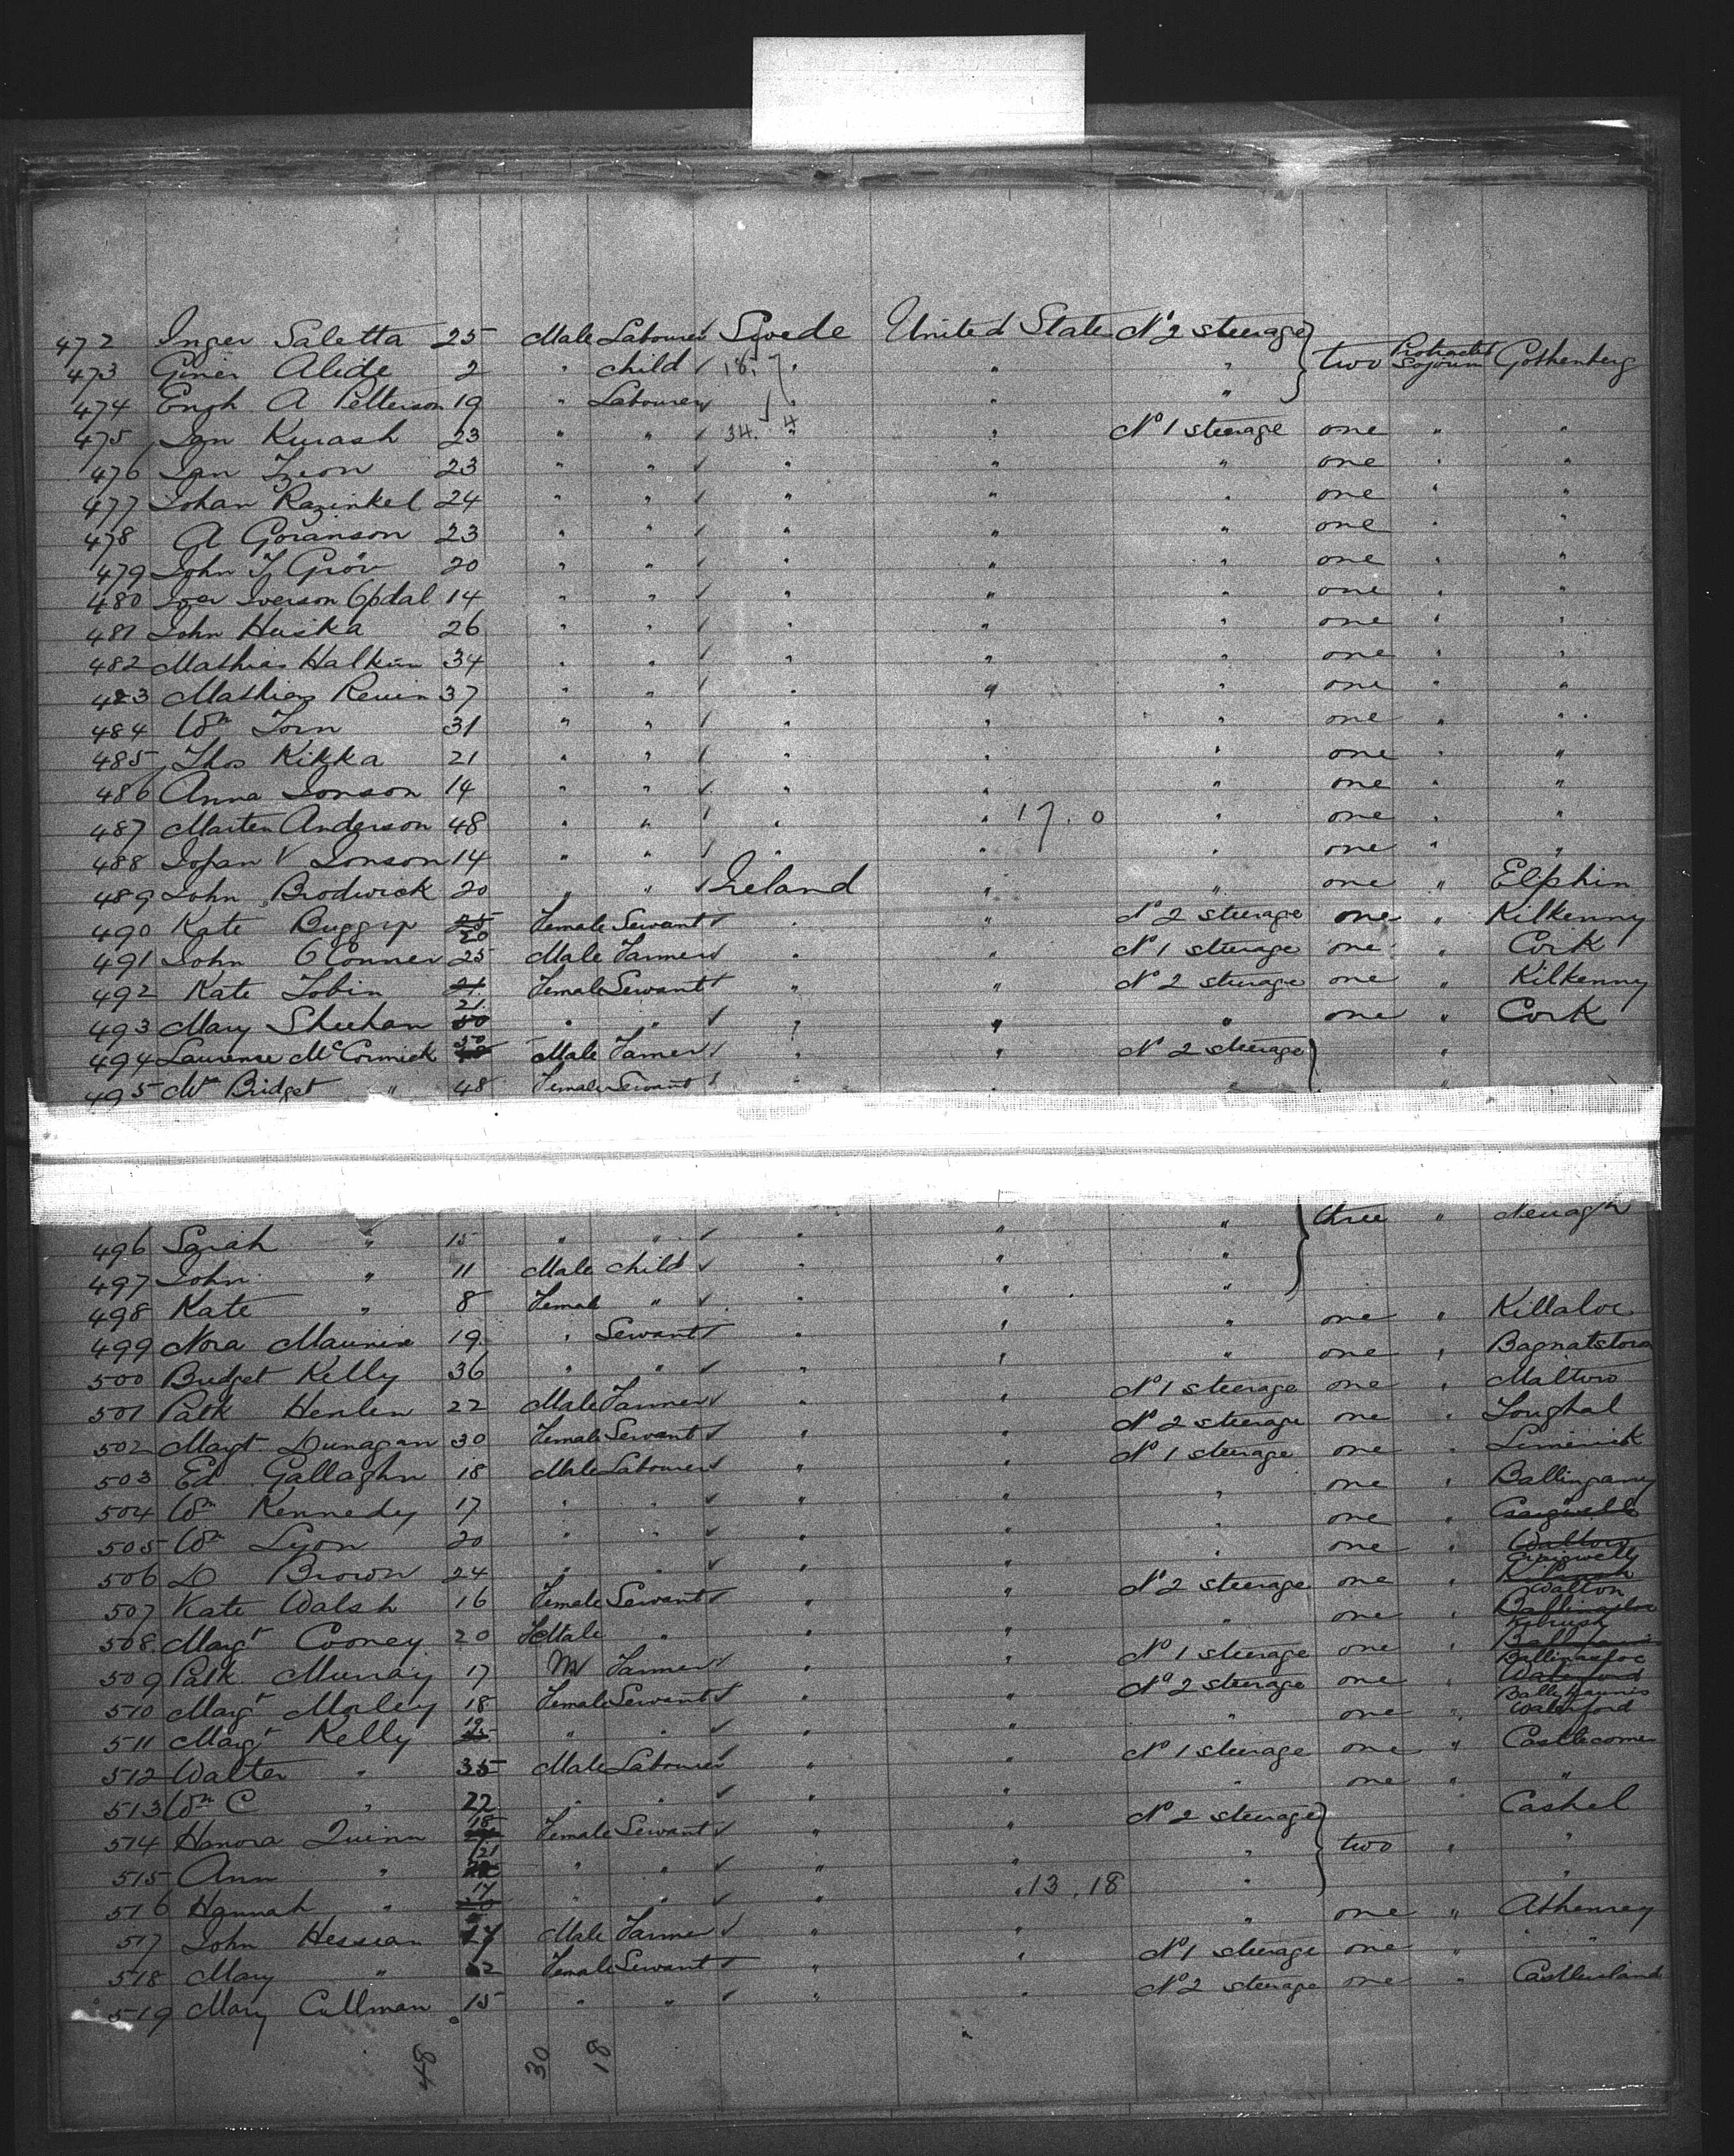 472 Inger Saletta 25 Male Labourer Swede United State No 2 steerage
473 Giner Alide 2 " child 18. " " " two Protracted Sojourn Gothenberg
474 Engh A Petterson 19 " Labourer " " "
475 Jan Kurash 23 " " 34. 4 " " No 1 steerage one " "
476 Jan 23 " " " " " one " "
477 Johan Razinkel 24 " " " " " one " "
478 A Goranson 23 " " " " " one " "
479 John Gröv 20 " " " " " one " "
480 Iver Iverson Opdal 14 " " " " " one " "
481 John Huska 26 " " " " " one " "
482 Mathias 34 " " " " " one " "
483 Mathias 37 " " " " " one " "
484 Wm Torn 31 " " " " " one " "
485 Thos Kikka 21 " " " " " one " "
486 Anna Jonson 14 " " " " " one " "
487 Marten Anderson 48 " " " " 17.0 " one " "
488 Johan V Jonson 14 " " " " " one " "
489 John Brodwick 20 " " Ireland " " one " Elphin
490 Kate 25 20 Female Servant " " No 2 steerage one " Kilkenny
491 John O Conner 25 Male Farmer " " No 1 steerage one " Cork
492 Kate Tobin 21 Female Servant " " No 2 steerage one " Kilkenny
493 Mary Sheehan 50 " " " " " one " Cork
494 Laurence McCormick 50 Male Farmer " " No 2 steerage "
495 Mrs Bridget " 48 Female Servant " " " "
three " Nenagh
496 Sarah " 15 " " " " "
497 John " 11 Male child " " "
498 Kate " 8 Female " " " "
499 Nora 19 " Servant " " " one " Killaloe
500 Bridget Kelly 36 " " " " " one " Bagnatstown
501 Patk Henlen 22 Male Farmer " " No 1 steerage one "
502 Margt Dunagan 30 Female Servant " " No 2 steerage one " Youghal
503 Ed Gallaghn 18 Male Labourer " " No 1 steerage one " Limerick
504 Wm Kennedy 17 " " " " " one " Ballingarry
505 Wm Lyon 20 " " " " " one " Craigwell
506 D Brown 24 " " " " " one " Walton Craigwell
507 Kate Walsh 16 Female Servant " " No 2 steerage one " Kilrush Walton
508 Margt Cooney 20 FeMale " " " " one " Ballinasloe Kilrush
509 Patk Murray 17 M Farmer " " No 1 steerage one " Ballyhaunis Ballinasloe
510 Margt Morley 18 Female Servant " " No 2 steerage one " Waterford Ballyhaunis
511 Margt Kelly 19 " " " " " one " Waterford
512 Walter " 35 Male Labourer " " No 1 steerage one " Castlecomer
513 Wm C " 22 " " " " " one " "
514 Honora Quinn 18 Female Servant " " No 2 steerage Cashel
515 Ann " 21 " " " " " two " "
516 Hannah " 17 " " " " 13.18 " "
517 John Hession 17 Male Farmer " " " one " Athenrey
518 Mary " 22 Female Servant " " No 1 steerage one " "
519 Mary Cullman 15 " " " " No 2 steerage one " Castleisland
48 30 18